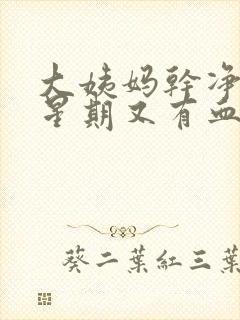 大姨妈幹净
星期又有血
葵二葉紅三葉